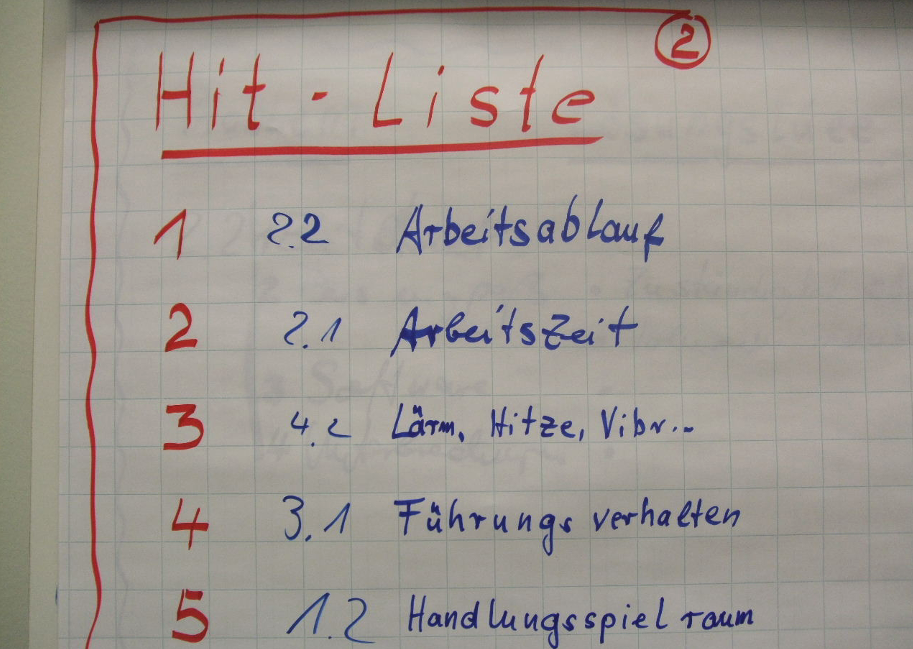 2
Hit - Liste
1 2.2 Arbeitsablauf
2 2.1 Arbeitszeit
3 4.2 Lärm, Hitze, Vibr...
4 3.1 Führungsverhalten
5 1.2 Handlungsspielraum